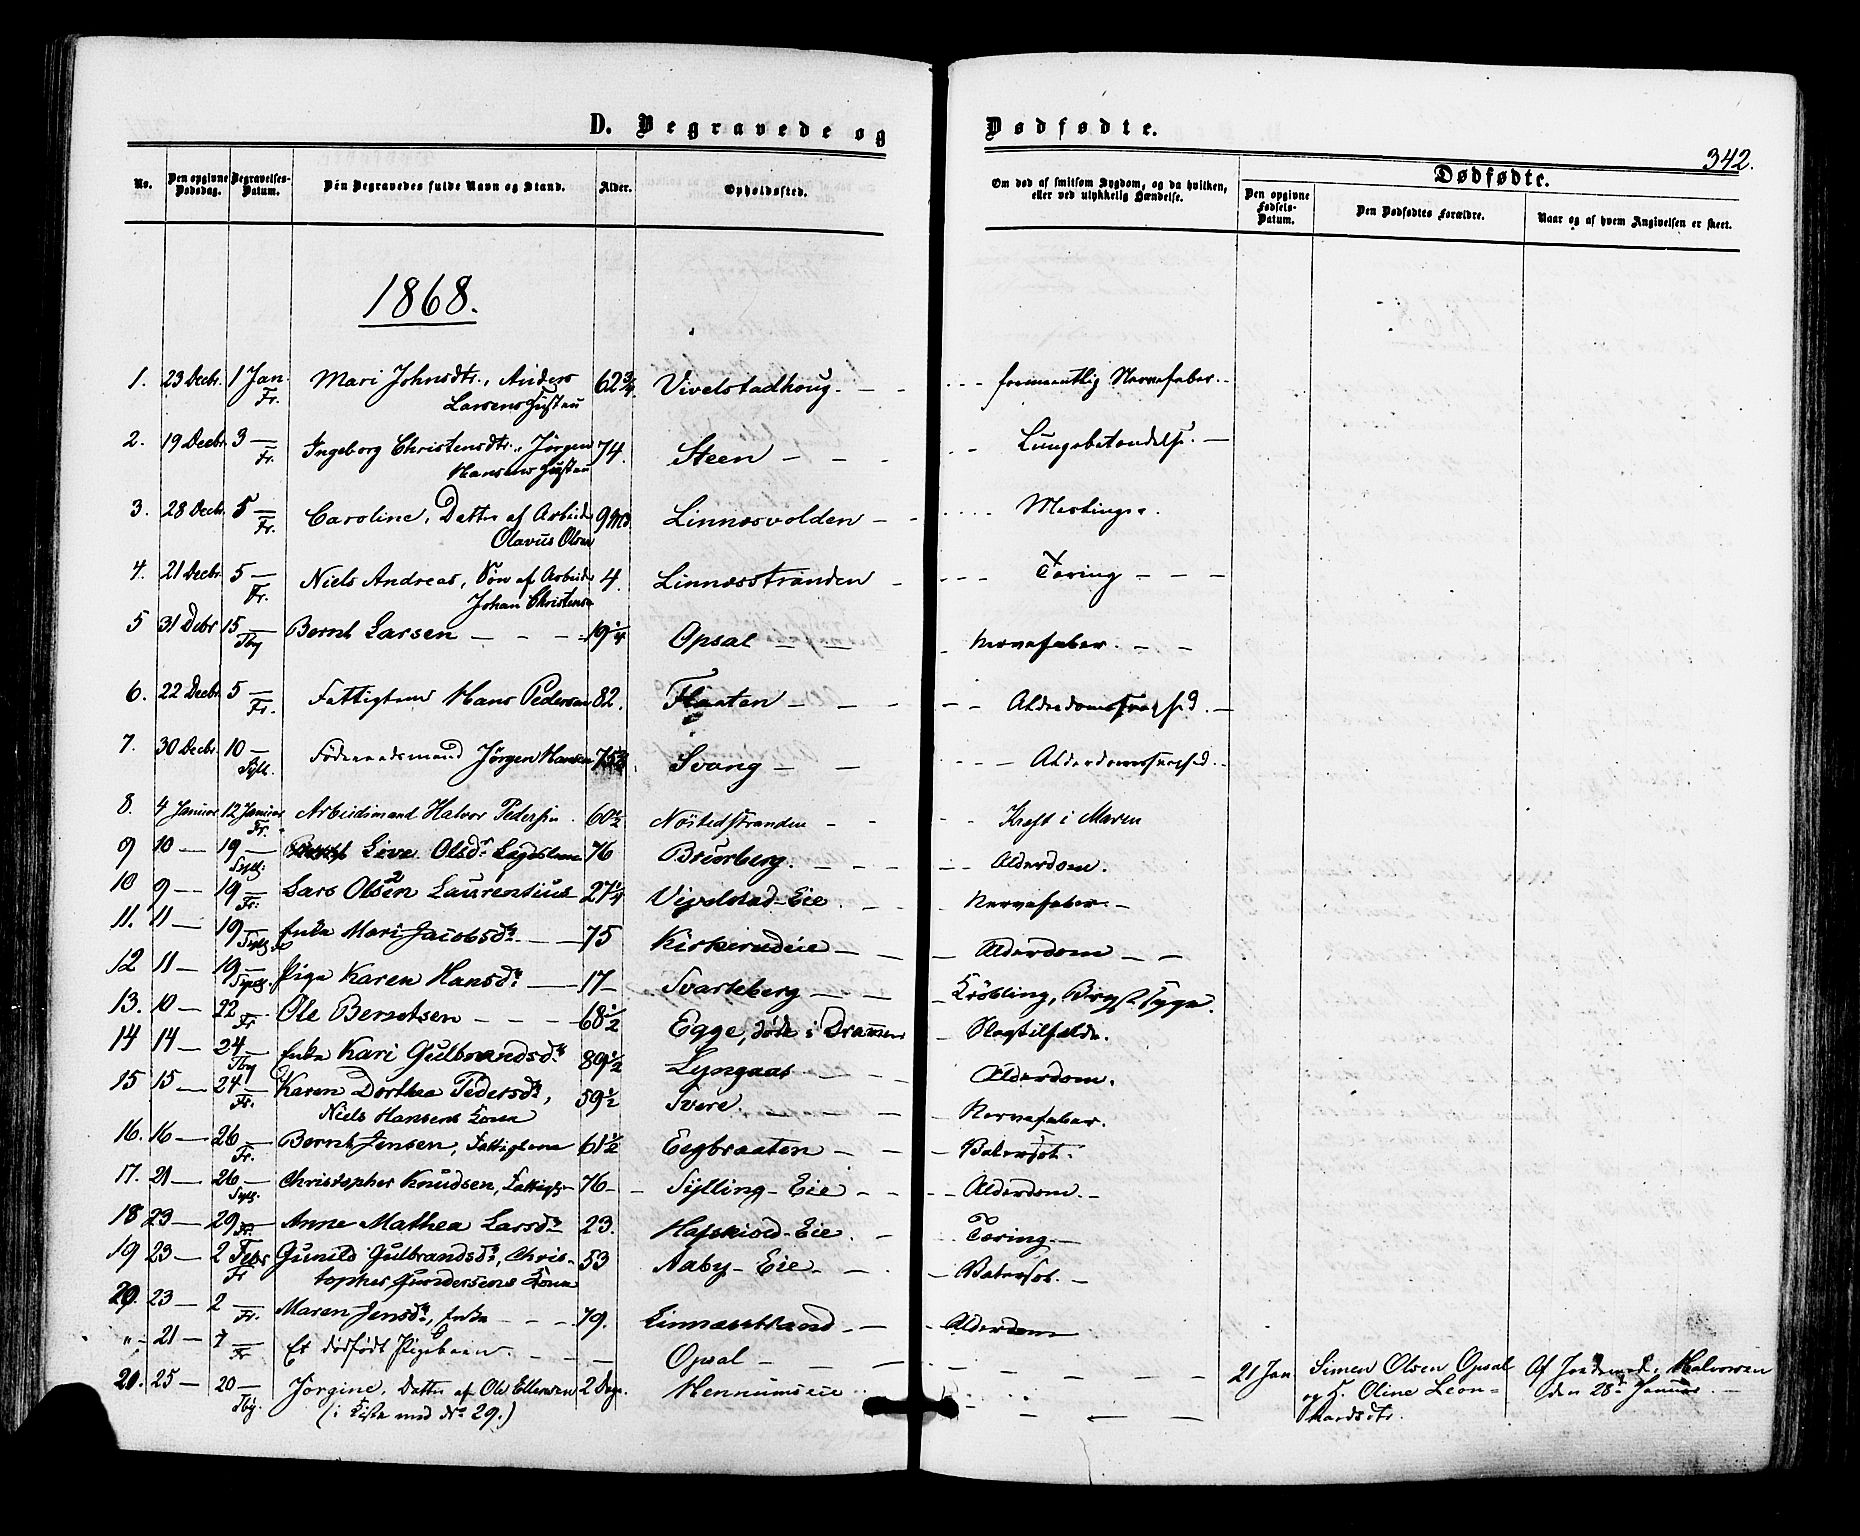 D. Begravede og Dødfødte.
342.
No. Den opgivne Dødsdag. Begravelses-Datum. Den Begravedes fulde Navn og Stand. Alder. Opholdssted. Om død af smitsom Sygdom, og da hvilken, eller ved ulykkelig Hændelse. Dødfødte. Den opgivne Fødsels-Datum. Den Dødfødtes Forældre. Naar og af hvem Angivelsen er skeet.
1868.
1. 23 Decbr. 1 Jan. Mari Johnsdtr., Anders 62 3/4 Vivelstadhoug. formentlig Nervefeber.
Fr. Larsens Hustru
2. 19 Decbr. 3 — Ingeborg Christensdtr., Jørgen 74. Steen Lungebetændelse.
Fr. Hansens Hustru
3. 28 Decbr. 5 — Caroline, Datter af Arbeider 9 Md. Linnæsvolden Meslinger.
Fr. Olavus Olsen
4. 21 Decbr. 5 — Niels Andreas, Søn af Arbeider 4. Linnæsstranden Tæring
Fr. Johan Christensen
5 31 Decbr 15 — Bernt Larsen 19 1/4 Opsal Nervefeber.
Tby
6. 22 Decbr. 5 — Fattiglem Hans Pedersen 82. Flaaten Alderdomssvaghed.
Fr.
7. 30 Decbr. 10 — Føderaadsmand Jørgen Hansen Svang Alderdomssvaghed.
Syll.
8. 4 Januar 12 Januar Arbeidsmand Halvor Pedersen 60 1/2 Nøstedstranden Kræft i Maven
Fr.
9 10 — 19 — Live Olsdr. Lægdslem 76 Buørberg. Alderdom.
Syllg.
10 9 — 19 — Lars Olsen Laurentius 27 1/4 Vivelstad-Eie. Nervefeber.
Fr.
11. 11 — 19 — Enke Mari Jacobsdr. 75 Kirkerudeie Alderdom
Syllg.
12 11 — 19 — Pige Karen Hansdr. 17 Svarteberg Krøbling, Brystsyge.
Syllg.
13. 10 — 22 — Ole Berntsen 68 1/2 Egge, døde i Drammen Slagtilfælde.
Fr
14 14 — 24 — Enke Kari Gulbrandsdr. 89 1/2 Lyngaas Alderdom.
Tby
15 15 — 24 — Karen Dorthea Pedersdr., 59 1/2 Svere. Nervefeber.
Fr. Niels Hansens Kone
16. 16 — 26 — Bernt Jensen, Fattiglem 61 1/2 Eegbraaten Vatersot.
Fr.
17. 21 — 26 — Christopher Knudsen, Fattigl. 76 Sylling-Eie Alderdom.
Syllg.
18 23 — 29 — Anne Mathea Larsdr. 23. Hafskiold-Eie. Tæring.
Fr.
19 23 — 2 Febr Gunild Gulbrandsdr., Chris- 53 Aaby-Eie Vatersot.
Fr tophes Gundersens Kone
20. 23 — 2 — Maren Jensdr., Enke 79. Linnæsstrand Alderdom
Fr.
" 21 — 7 — Et dødfødt Pigebarn. Opsal 21 Jan Simen Olsen Opsal Af Jordemod. Halvorsen
Fr og H. Oline Leon- den 28de Januar.
hardsdtr.
21. 25 — 20 — Jørgine, Datter af Ole Ellevsen 2 Dage. Hennumseie
Tby. (i Kiste med No. 29.)